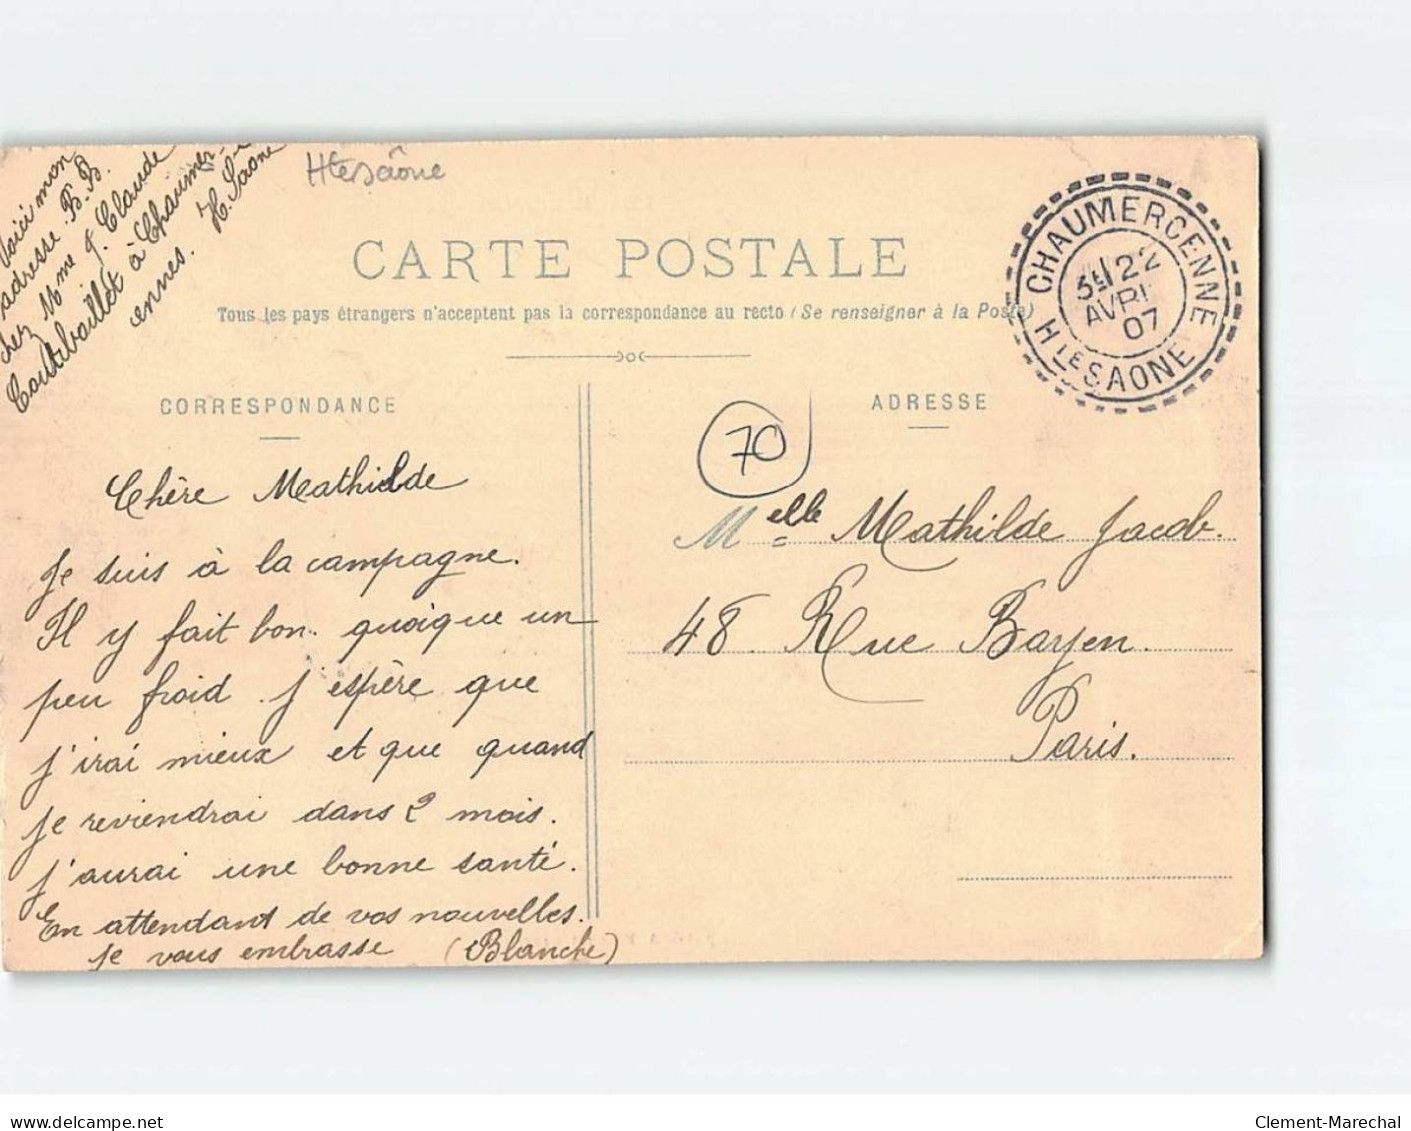 Voici mon
adresse. B. B.
chez Mme J. Claude
à Chaumer-
cennes. Hte Saone
Hte Saône
CARTE POSTALE
Tous les pays étrangers n'acceptent pas la correspondance au recto (Se renseigner à la Poste)
CHAUMERCENNE
22
AVRIL
07
HTE SAONE
CORRESPONDANCE
Chère Mathilde
Je suis à la campagne.
Il y fait bon. quoique un
peu froid. j'espère que
j'irai mieux et que quand
je reviendrai dans 2 mois.
j'aurai une bonne santé.
En attendant de vos nouvelles.
je vous embrasse (Blanche)
ADRESSE
70
Melle Mathilde Jacob.
48. Rue Bayen.
Paris.
delcampe.net
Clement-Marechal